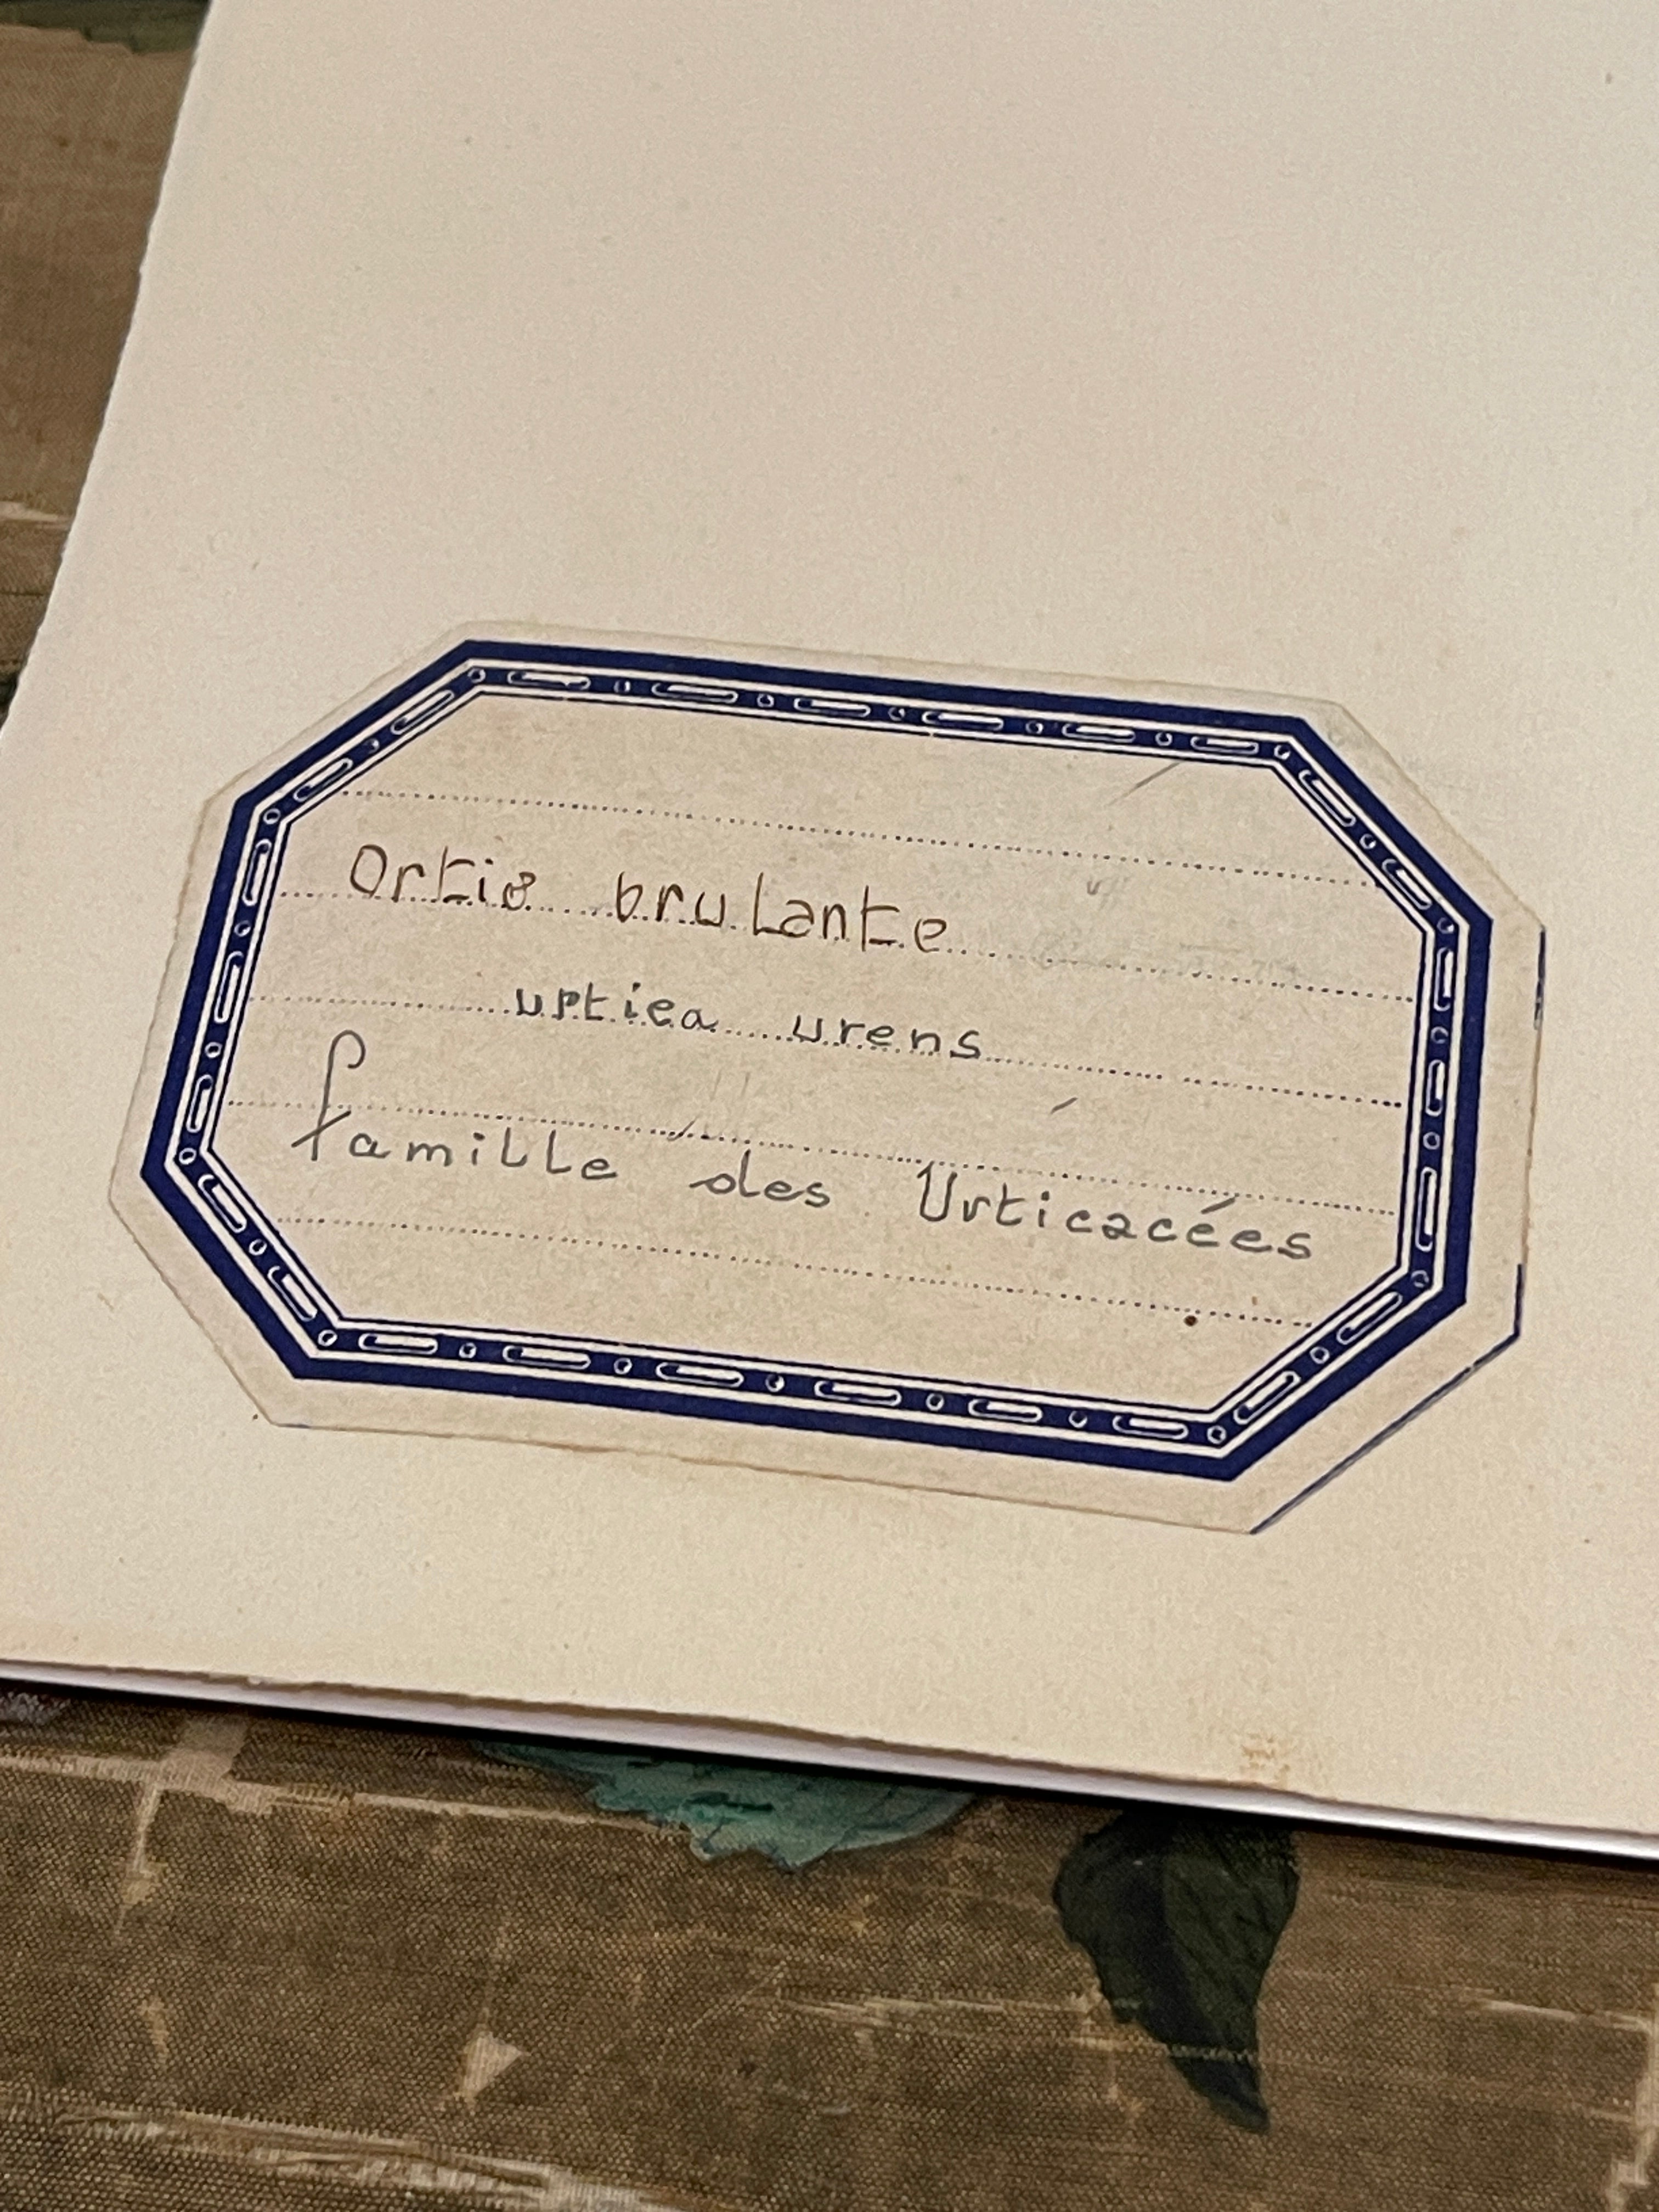 Ortie brulante
urtica urens
famille des Urticacées